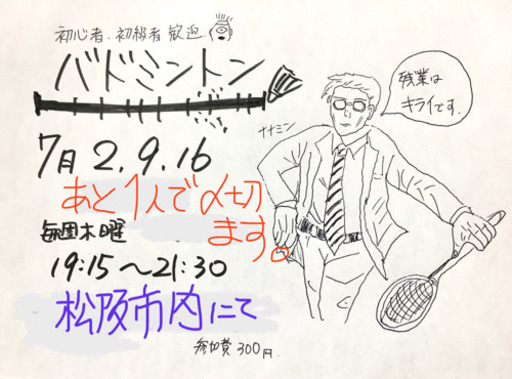 初心者.初級者歓迎
バドミントン
7月 2.9.16
あと1人で〆切
ます。
毎週木曜
19:15〜21:30
松阪市内にて
参加費 300円.
ナナミン
残業は
キライです.